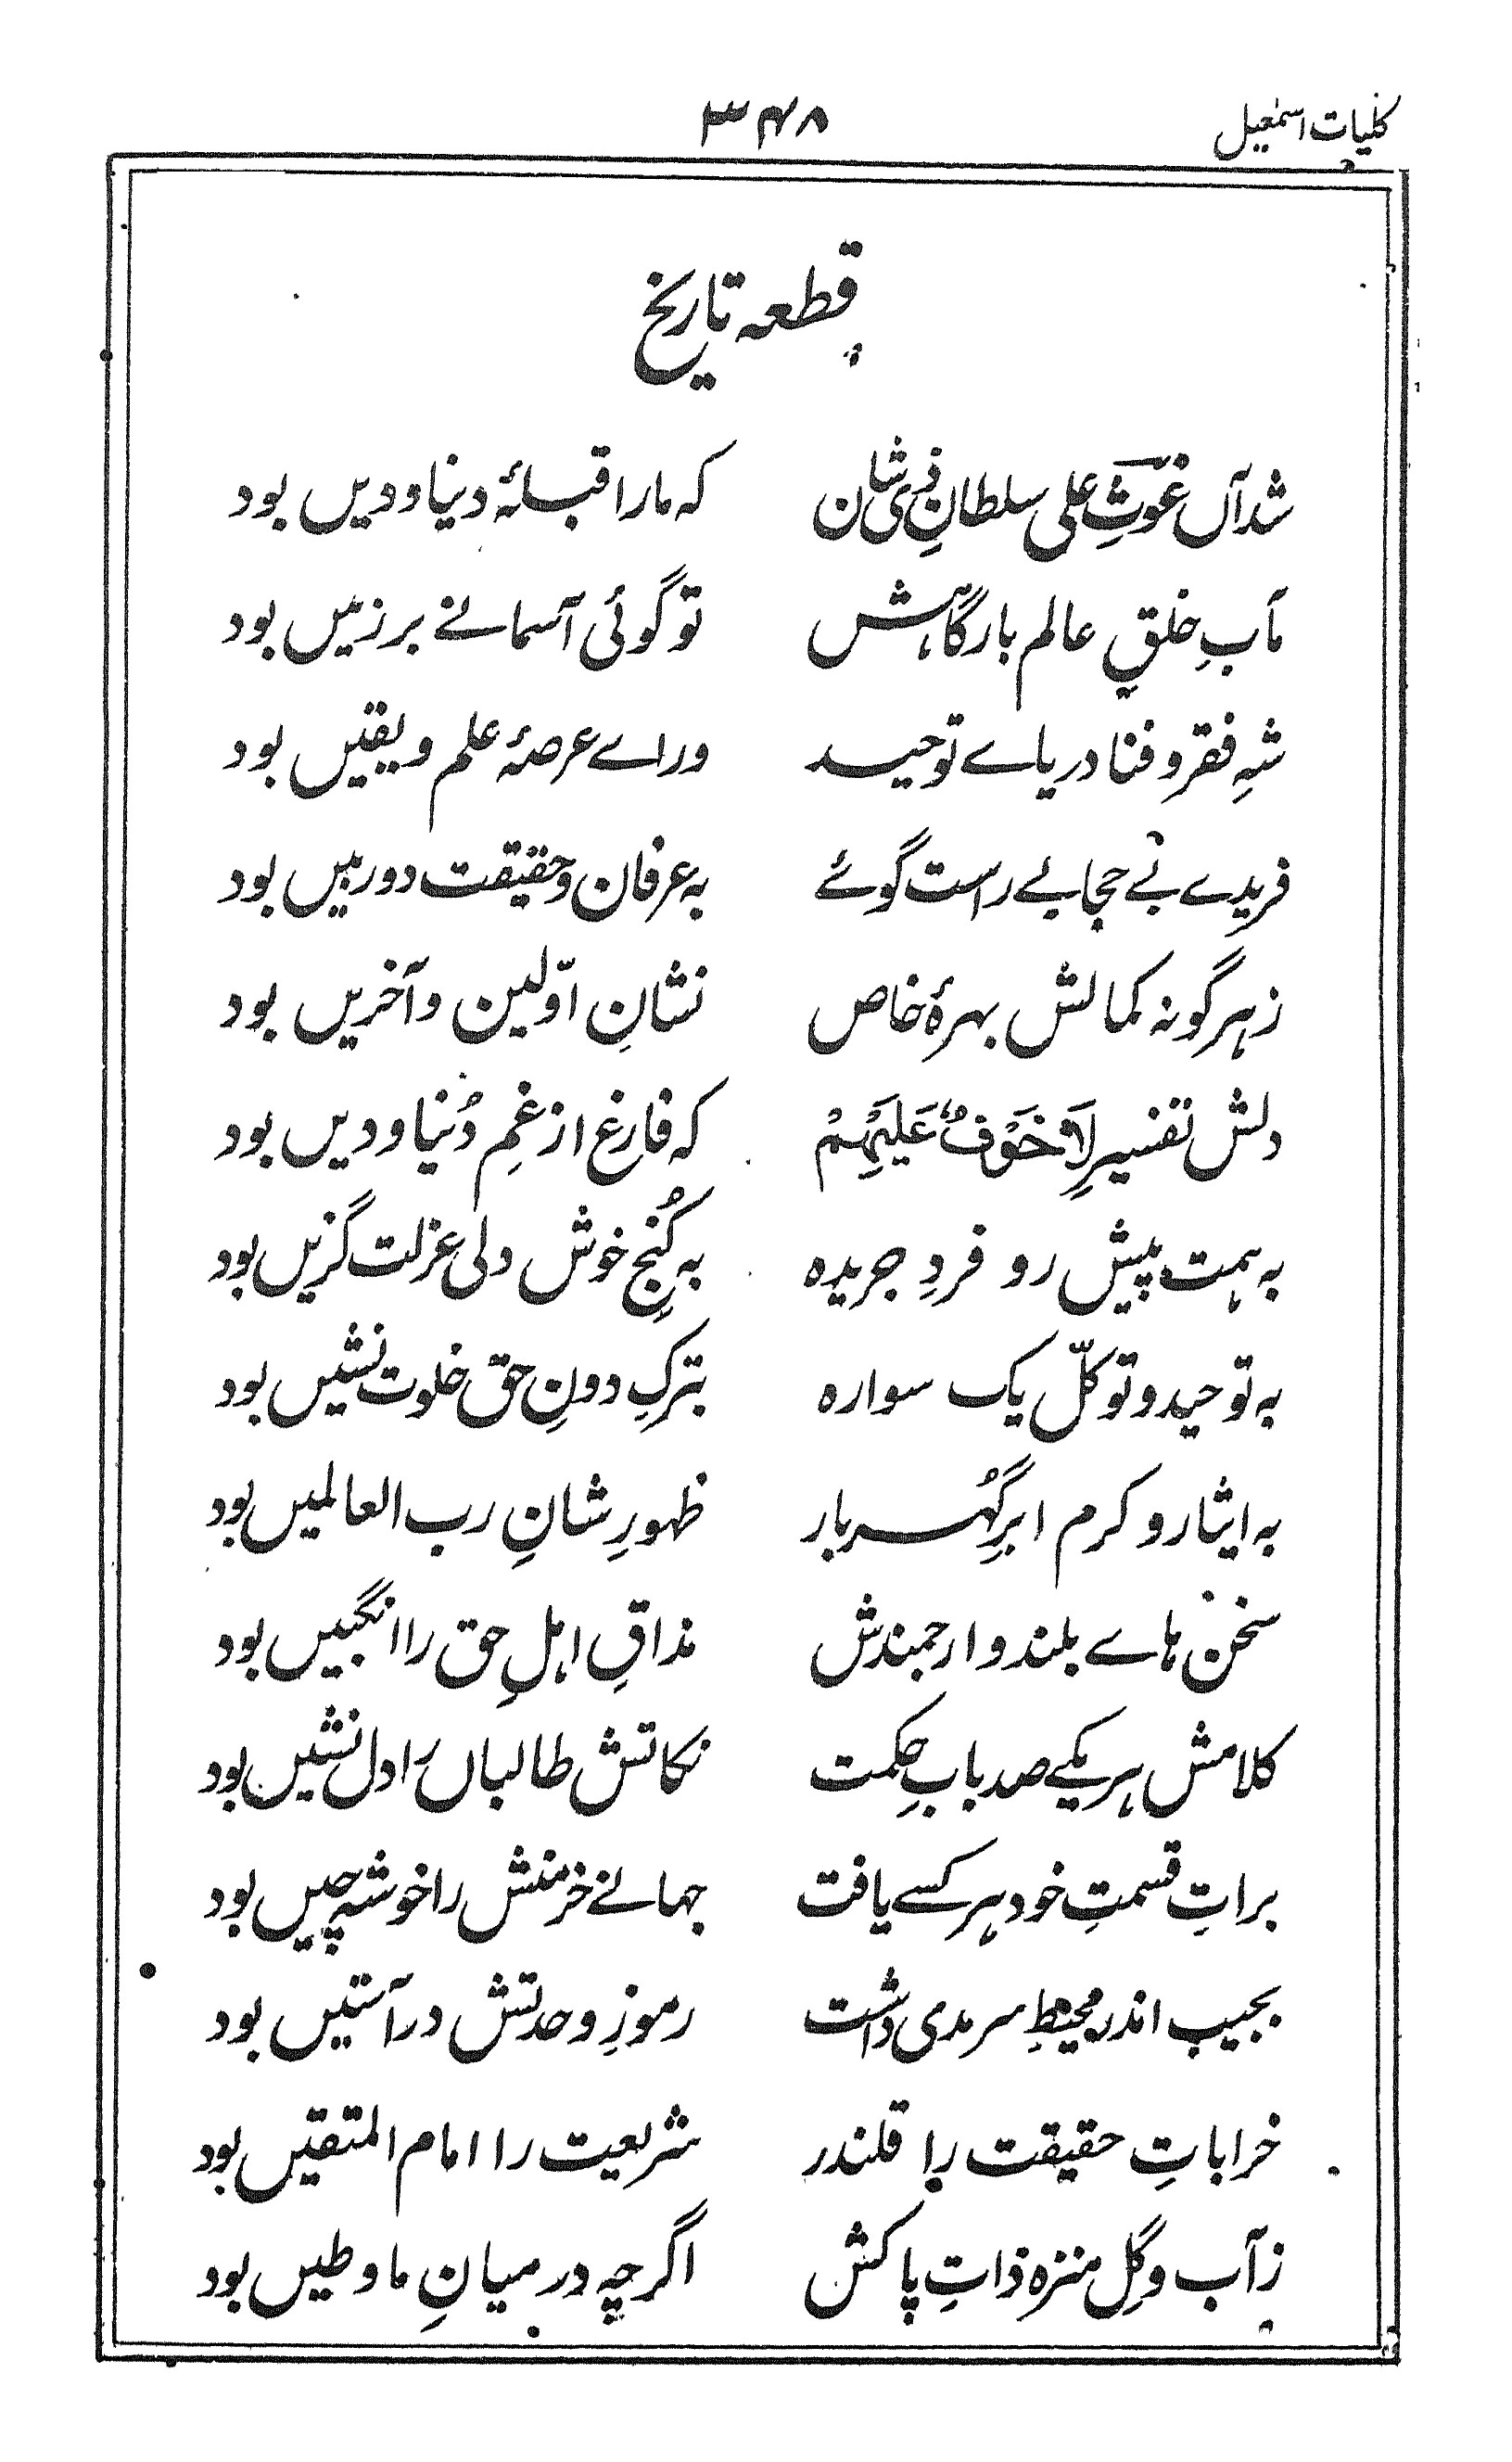 کلیات اسمٰعیل ۳۴۸
قطعہ تاریخ
شد آں غوثِ علی سلطانِ ذی شان کہ مارا قبلۂ دنیا و دیں بود
مآبِ خلقِ عالم بارگاہش تو گوئی آسمانے بر زمیں بود
شہِ فقر و فنا دریاے توحید وراے عرصۂ علم و یقیں بود
فریدے بے حجابے راست گوئے بہ عرفان و حقیقت دور بیں بود
زہر گونہ کمالش بہرۂ خاص نشانِ اوّلین و آخریں بود
دلش تفسیرِ لَا خَوْفٌ عَلَیْہِمْ کہ فارغ از غمِ دُنیا و دیں بود
بہ ہمت پیش رو فردِ جریدہ بہ کُنجِ خوش دلی عزلت گزیں بود
بہ توحید و توکّل یک سوارہ بترکِ دونِ حق خلوت نشیں بود
بہ ایثار و کرم ابرِ گُہر بار ظہورِ شانِ رب العالمیں بود
سخن ہاے بلند و ارجمندش مذاقِ اہلِ حق را انگبیں بود
کلامش ہر یکے صد بابِ حکمت نکاتش طالباں را دل نشیں بود
براتِ قسمتِ خود ہر کسے یافت جہانے خرمنش را خوشہ چیں بود
بجیب اندر محیطِ سرمدی داشت رموزِ وحدتش در آستیں بود
خراباتِ حقیقت را قلندر شریعت را امام المتقیں بود
ز آب و گِل منزہ ذاتِ پاکش اگرچہ درمیانِ ما و طیں بود